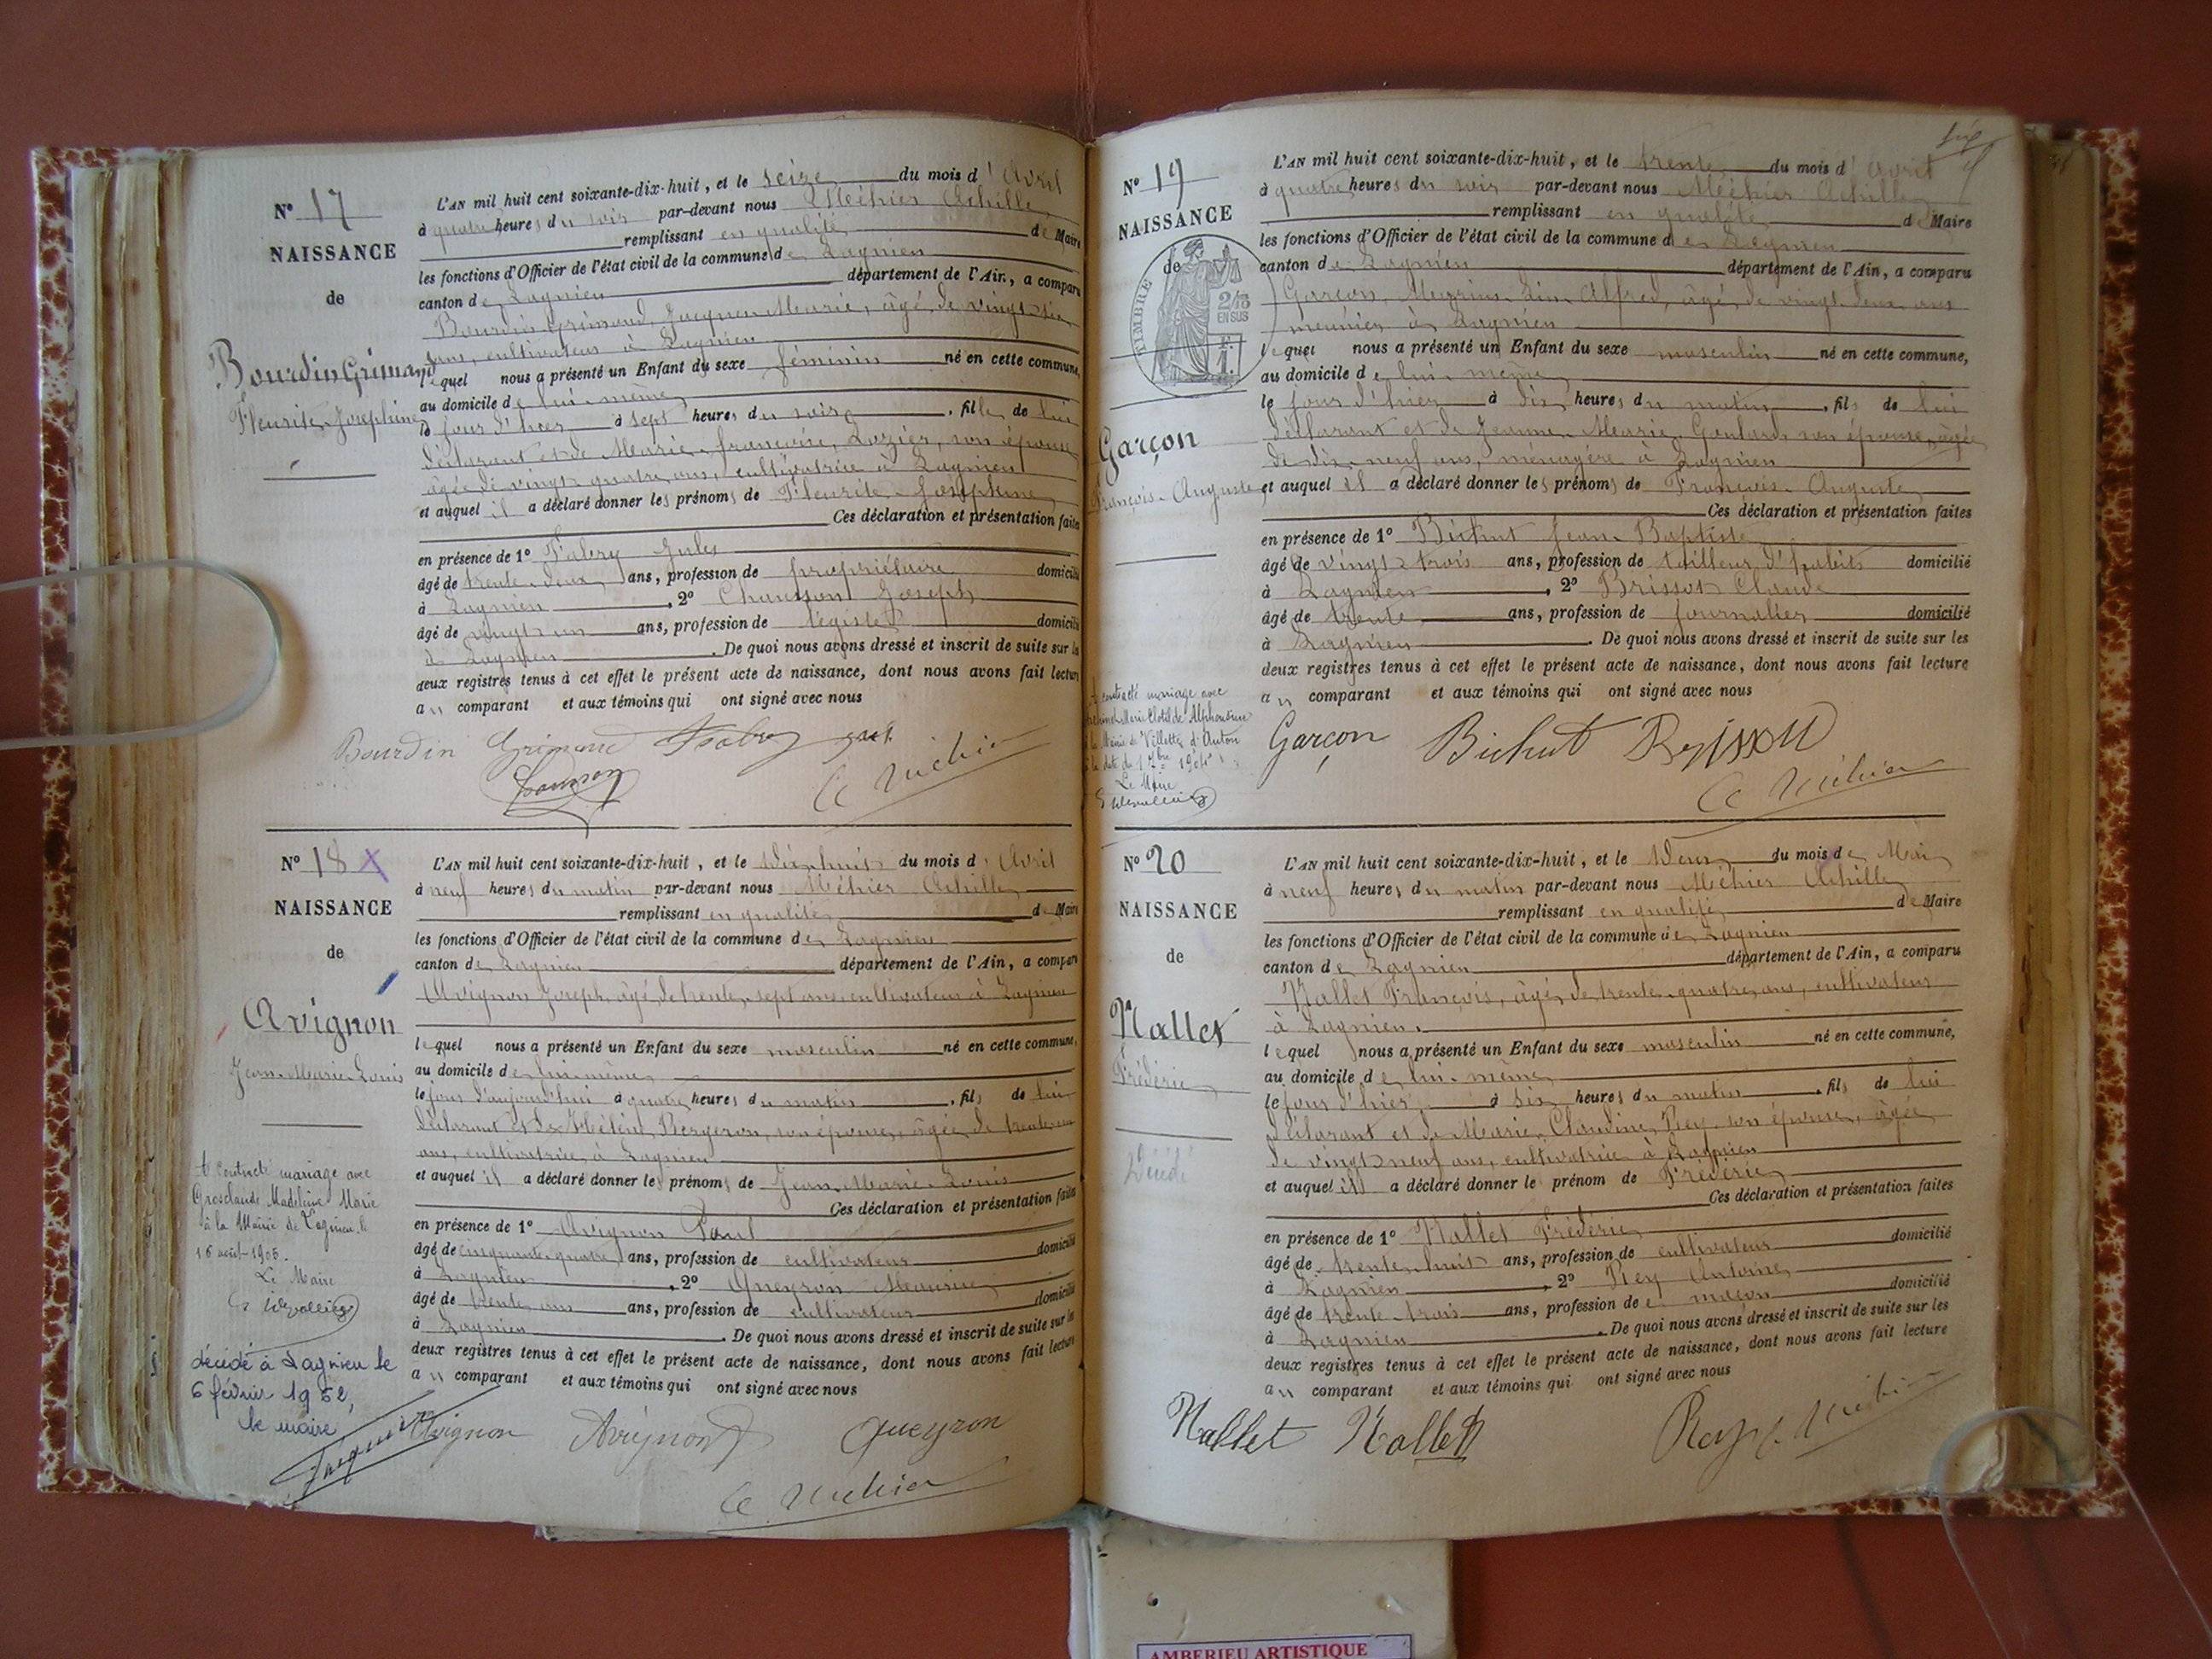 N° 17
NAISSANCE
de
Bourdin Grimaud
Fleurite Joséphine
L'AN mil huit cent soixante-dix-huit, et le seize du mois d'Avril
à quatre heures du soir par-devant nous Méhier Achille
remplissant en qualité de Maire
les fonctions d'Officier de l'état civil de la commune de Lagnieu
canton de Lagnieu département de l'Ain, a comparu
Bourdin Grimaud, Jacques Marie, âgé de vingt six
ans, cultivateur à Lagnieu
lequel nous a présenté un Enfant du sexe féminin né en cette commune,
au domicile de lui-même
le jour d'hier à sept heures du soir, fille de lui
déclarant et de Marie françoise Lozier, son épouse
âgée de vingt quatre ans, cultivatrice à Lagnieu
et auquel il a déclaré donner les prénoms de Fleurite Joséphine
Ces déclaration et présentation faites
en présence de 1° Fabry Jules
âgé de trente-deux ans, profession de propriétaire domicilié
à Lagnieu, 2° Chausson Joseph
âgé de vingt un ans, profession de domicilié
à Lagnieu. De quoi nous avons dressé et inscrit de suite sur les
deux registres tenus à cet effet le présent acte de naissance, dont nous avons fait lecture
au comparant et aux témoins qui ont signé avec nous
Bourdin Grimaud Fabry
A Méhier
N° 18
NAISSANCE
de
Avignon
Jean-Marie-Louis
A contracté mariage avec
Grosclaude Madeleine Marie
à la Mairie de Lagnieu le
16 août 1905.
Le Maire
décédé à Lagnieu le
6 février 1952,
le maire
L'AN mil huit cent soixante-dix-huit, et le dix huit du mois d'Avril
à neuf heures du matin par-devant nous Méhier Achille
remplissant en qualité de Maire
les fonctions d'Officier de l'état civil de la commune de Lagnieu
canton de Lagnieu département de l'Ain, a comparu
Avignon Joseph, âgé de trente-sept ans cultivateur à Lagnieu
lequel nous a présenté un Enfant du sexe masculin né en cette commune,
au domicile de lui-même
le jour d'aujourd'hui à quatre heures du matin, fils de lui
déclarant et de Hélène Bergeron, son épouse, âgée de trente
ans, cultivatrice à Lagnieu
et auquel il a déclaré donner les prénoms de Jean-Marie-Louis
Ces déclaration et présentation faites
en présence de 1° Avignon Paul
âgé de cinquante-quatre ans, profession de cultivateur domicilié
à Lagnieu, 2° Queyron Maurice
âgé de trente ans, profession de cultivateur domicilié
à Lagnieu. De quoi nous avons dressé et inscrit de suite sur les
deux registres tenus à cet effet le présent acte de naissance, dont nous avons fait lecture
au comparant et aux témoins qui ont signé avec nous
Avignon Avignon Queyron
A Méhier
N° 19
NAISSANCE
de
TIMBRE
2/10 EN SUS
Garçon
François-Auguste
A contracté mariage avec
Marie Clotilde Alphonsine
à la Mairie de Villette d'Anton
Le Maire
L'AN mil huit cent soixante-dix-huit, et le trente du mois d'avril
à quatre heures du soir par-devant nous Méhier Achille
remplissant en qualité de Maire
les fonctions d'Officier de l'état civil de la commune de Lagnieu
canton de Lagnieu département de l'Ain, a comparu
Garçon, Alfred, âgé de vingt-deux ans
meunier à Lagnieu
lequel nous a présenté un Enfant du sexe masculin né en cette commune,
au domicile de lui-même
le jour d'hier à dix heures du matin, fils de lui
déclarant et de Jeanne Marie Goulard, son épouse, âgée
de dix-neuf ans, ménagère à Lagnieu
et auquel il a déclaré donner les prénoms de François-Auguste
Ces déclaration et présentation faites
en présence de 1° Bichut Jean-Baptiste
âgé de vingt-trois ans, profession de tailleur d'habits domicilié
à Lagnieu, 2° Brisson Claude
âgé de trente ans, profession de journalier domicilié
à Lagnieu. De quoi nous avons dressé et inscrit de suite sur les
deux registres tenus à cet effet le présent acte de naissance, dont nous avons fait lecture
au comparant et aux témoins qui ont signé avec nous
Garçon Bichut Brisson
A Méhier
N° 20
NAISSANCE
de
Nallet
Frédéric
Décédé
L'AN mil huit cent soixante-dix-huit, et le deux du mois de Mai
à neuf heures du matin par-devant nous Méhier Achille
remplissant en qualité de Maire
les fonctions d'Officier de l'état civil de la commune de Lagnieu
canton de Lagnieu département de l'Ain, a comparu
Nallet François, âgé de trente-quatre ans, cultivateur
à Lagnieu.
lequel nous a présenté un Enfant du sexe masculin né en cette commune,
au domicile de lui-même
le jour d'hier à six heures du matin, fils de lui
déclarant et de Marie Claudine Rey, son épouse, âgée
de vingt neuf ans, cultivatrice à Lagnieu
et auquel il a déclaré donner le prénom de Frédéric
Ces déclaration et présentation faites
en présence de 1° Nallet Frédéric
âgé de trente-huit ans, profession de cultivateur domicilié
à Lagnieu, 2° Rey Antoine
âgé de trente-trois ans, profession de maçon domicilié
à Lagnieu. De quoi nous avons dressé et inscrit de suite sur les
deux registres tenus à cet effet le présent acte de naissance, dont nous avons fait lecture
au comparant et aux témoins qui ont signé avec nous
Nallet Nallet Rey A Méhier
AMBERIEU ARTISTIQUE